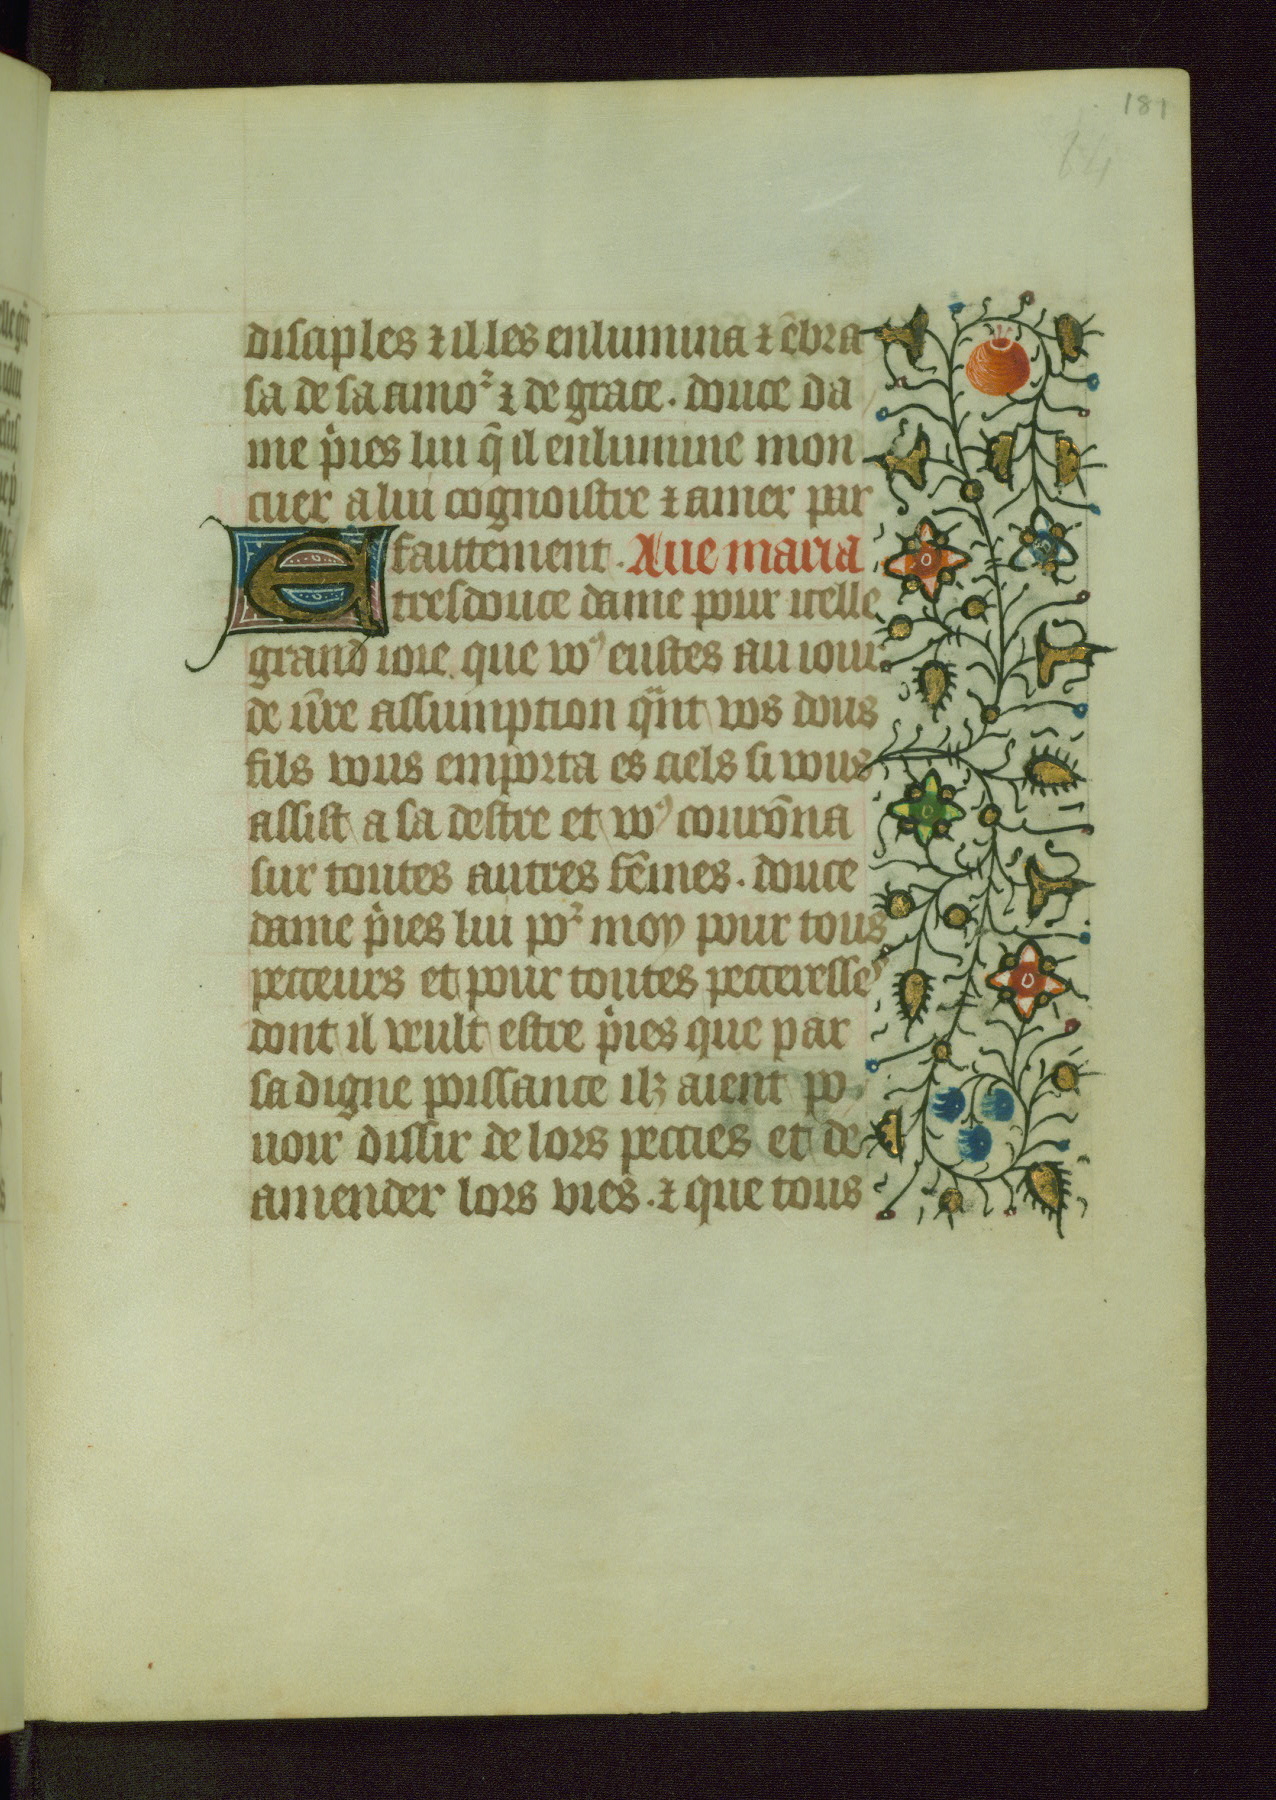 181
84
disciples ⁊ il les enlumina ⁊ ēbra
sa de sa amoᷣ ⁊ de grace. douce da
me p̍ies lui q̄ il enlumine mon
cuer a lui cognoistre ⁊ amer par
faittement. Aue maria
E tresdouce dame pour icelle
grand ioie que voꝰ eustes au iour
de v̄re assumption qᷓnt vos dous
fils vous emporta es ciels si vous
assist a sa destre et voꝰ courōna
sur toutes autres fēmes. douce
dame p̍ies lui poᷣ moy pour tous
peceurs et pour toutes pecceresses
dont il veult estre p̍ies que par
sa digne poissance ilz aient po
uoir dissir de lors pecies et de
amender lors vies. ⁊ que tous